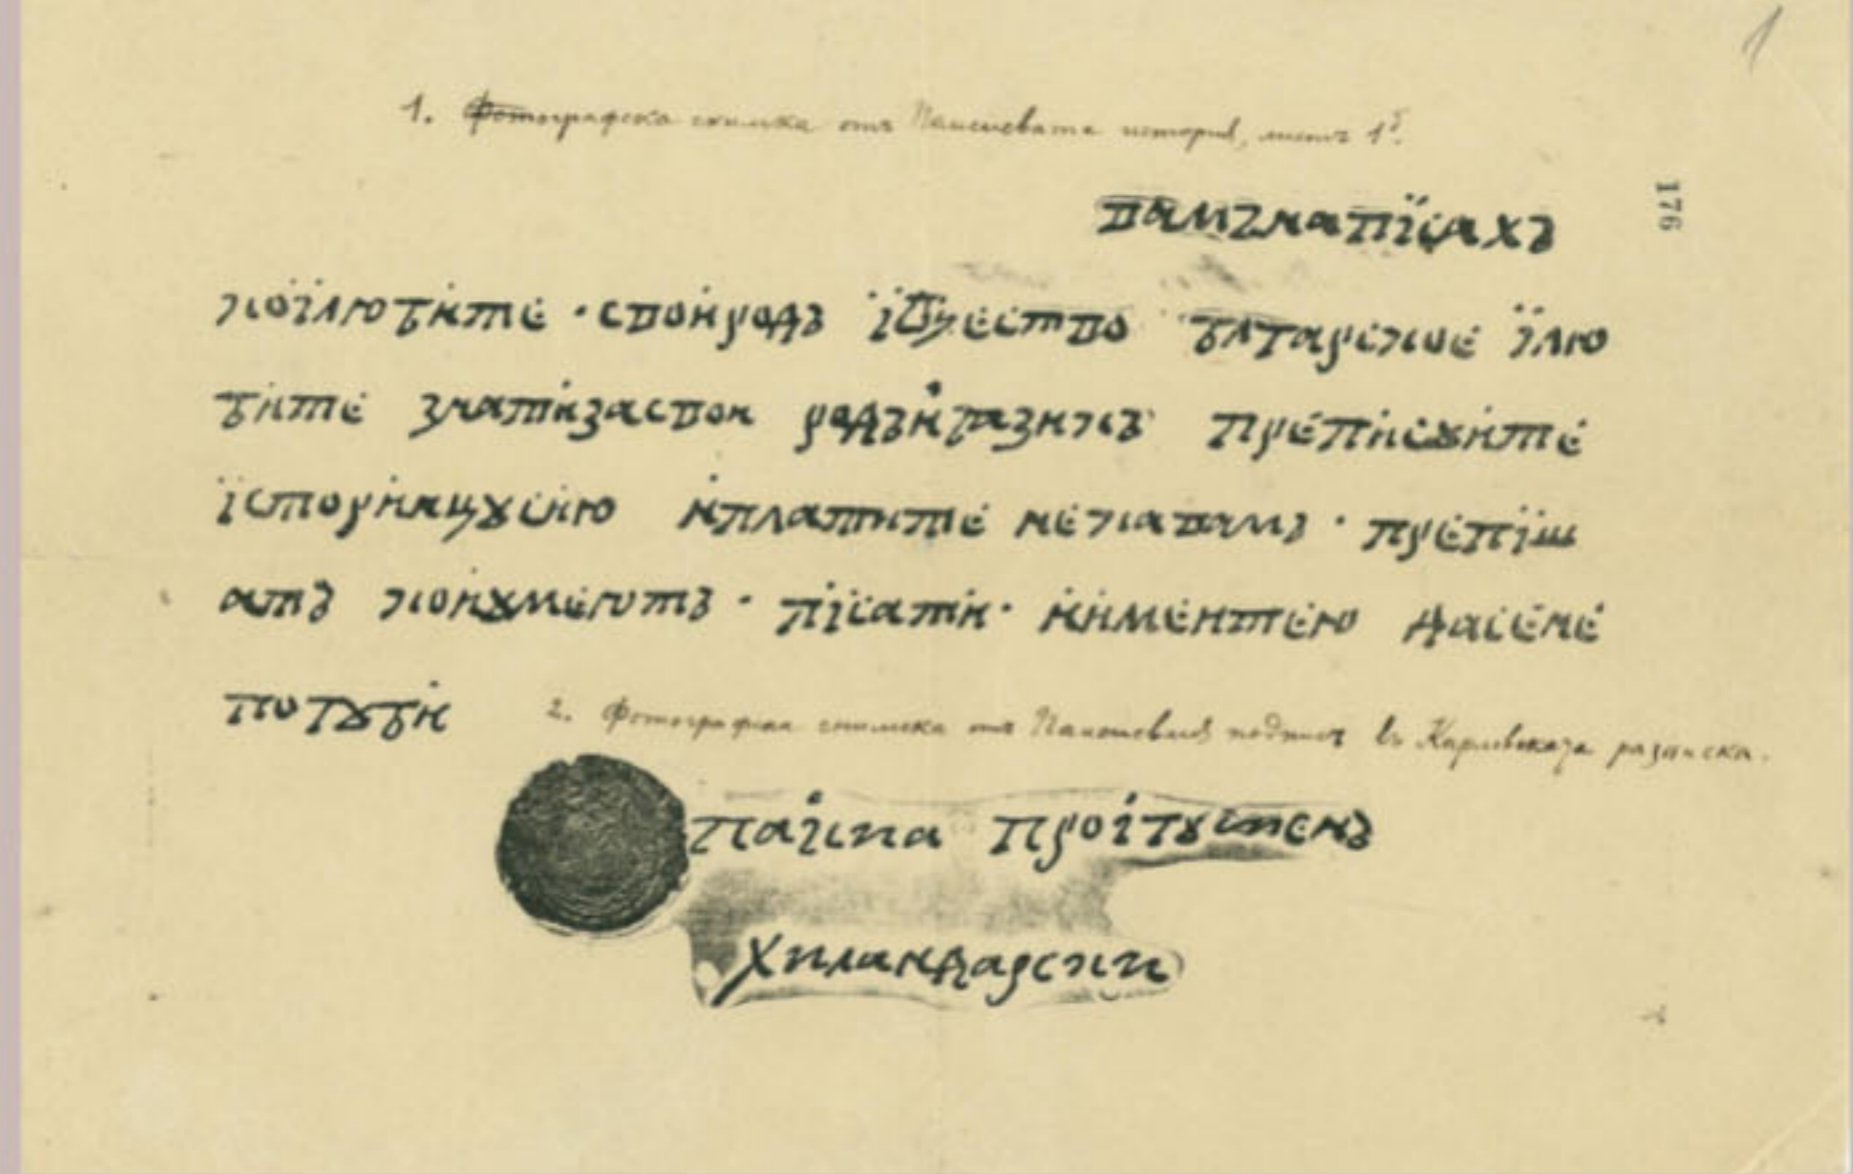 1
1. Фотографска снимка отъ Паисиевата история, листъ 1б.
176
вамъ написахъ
кои любите свои родъ и ѡчество бл҃гарское и лю
бите знати за свои родъ и ѧзикъ преписуите
историицу сию и платите нека вамъ препиш
атъ кои умеютъ писати и имеитею да се не
погуби
2. Фотографска снимка отъ Паисиевия подписъ въ Карловската разписка.
Паисиа проигуменъ
хиландарски